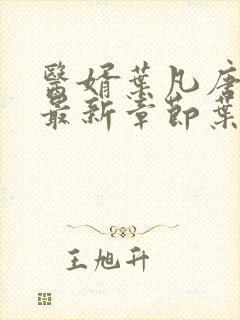 醫婿葉凡唐
最新章節葉
王旭升